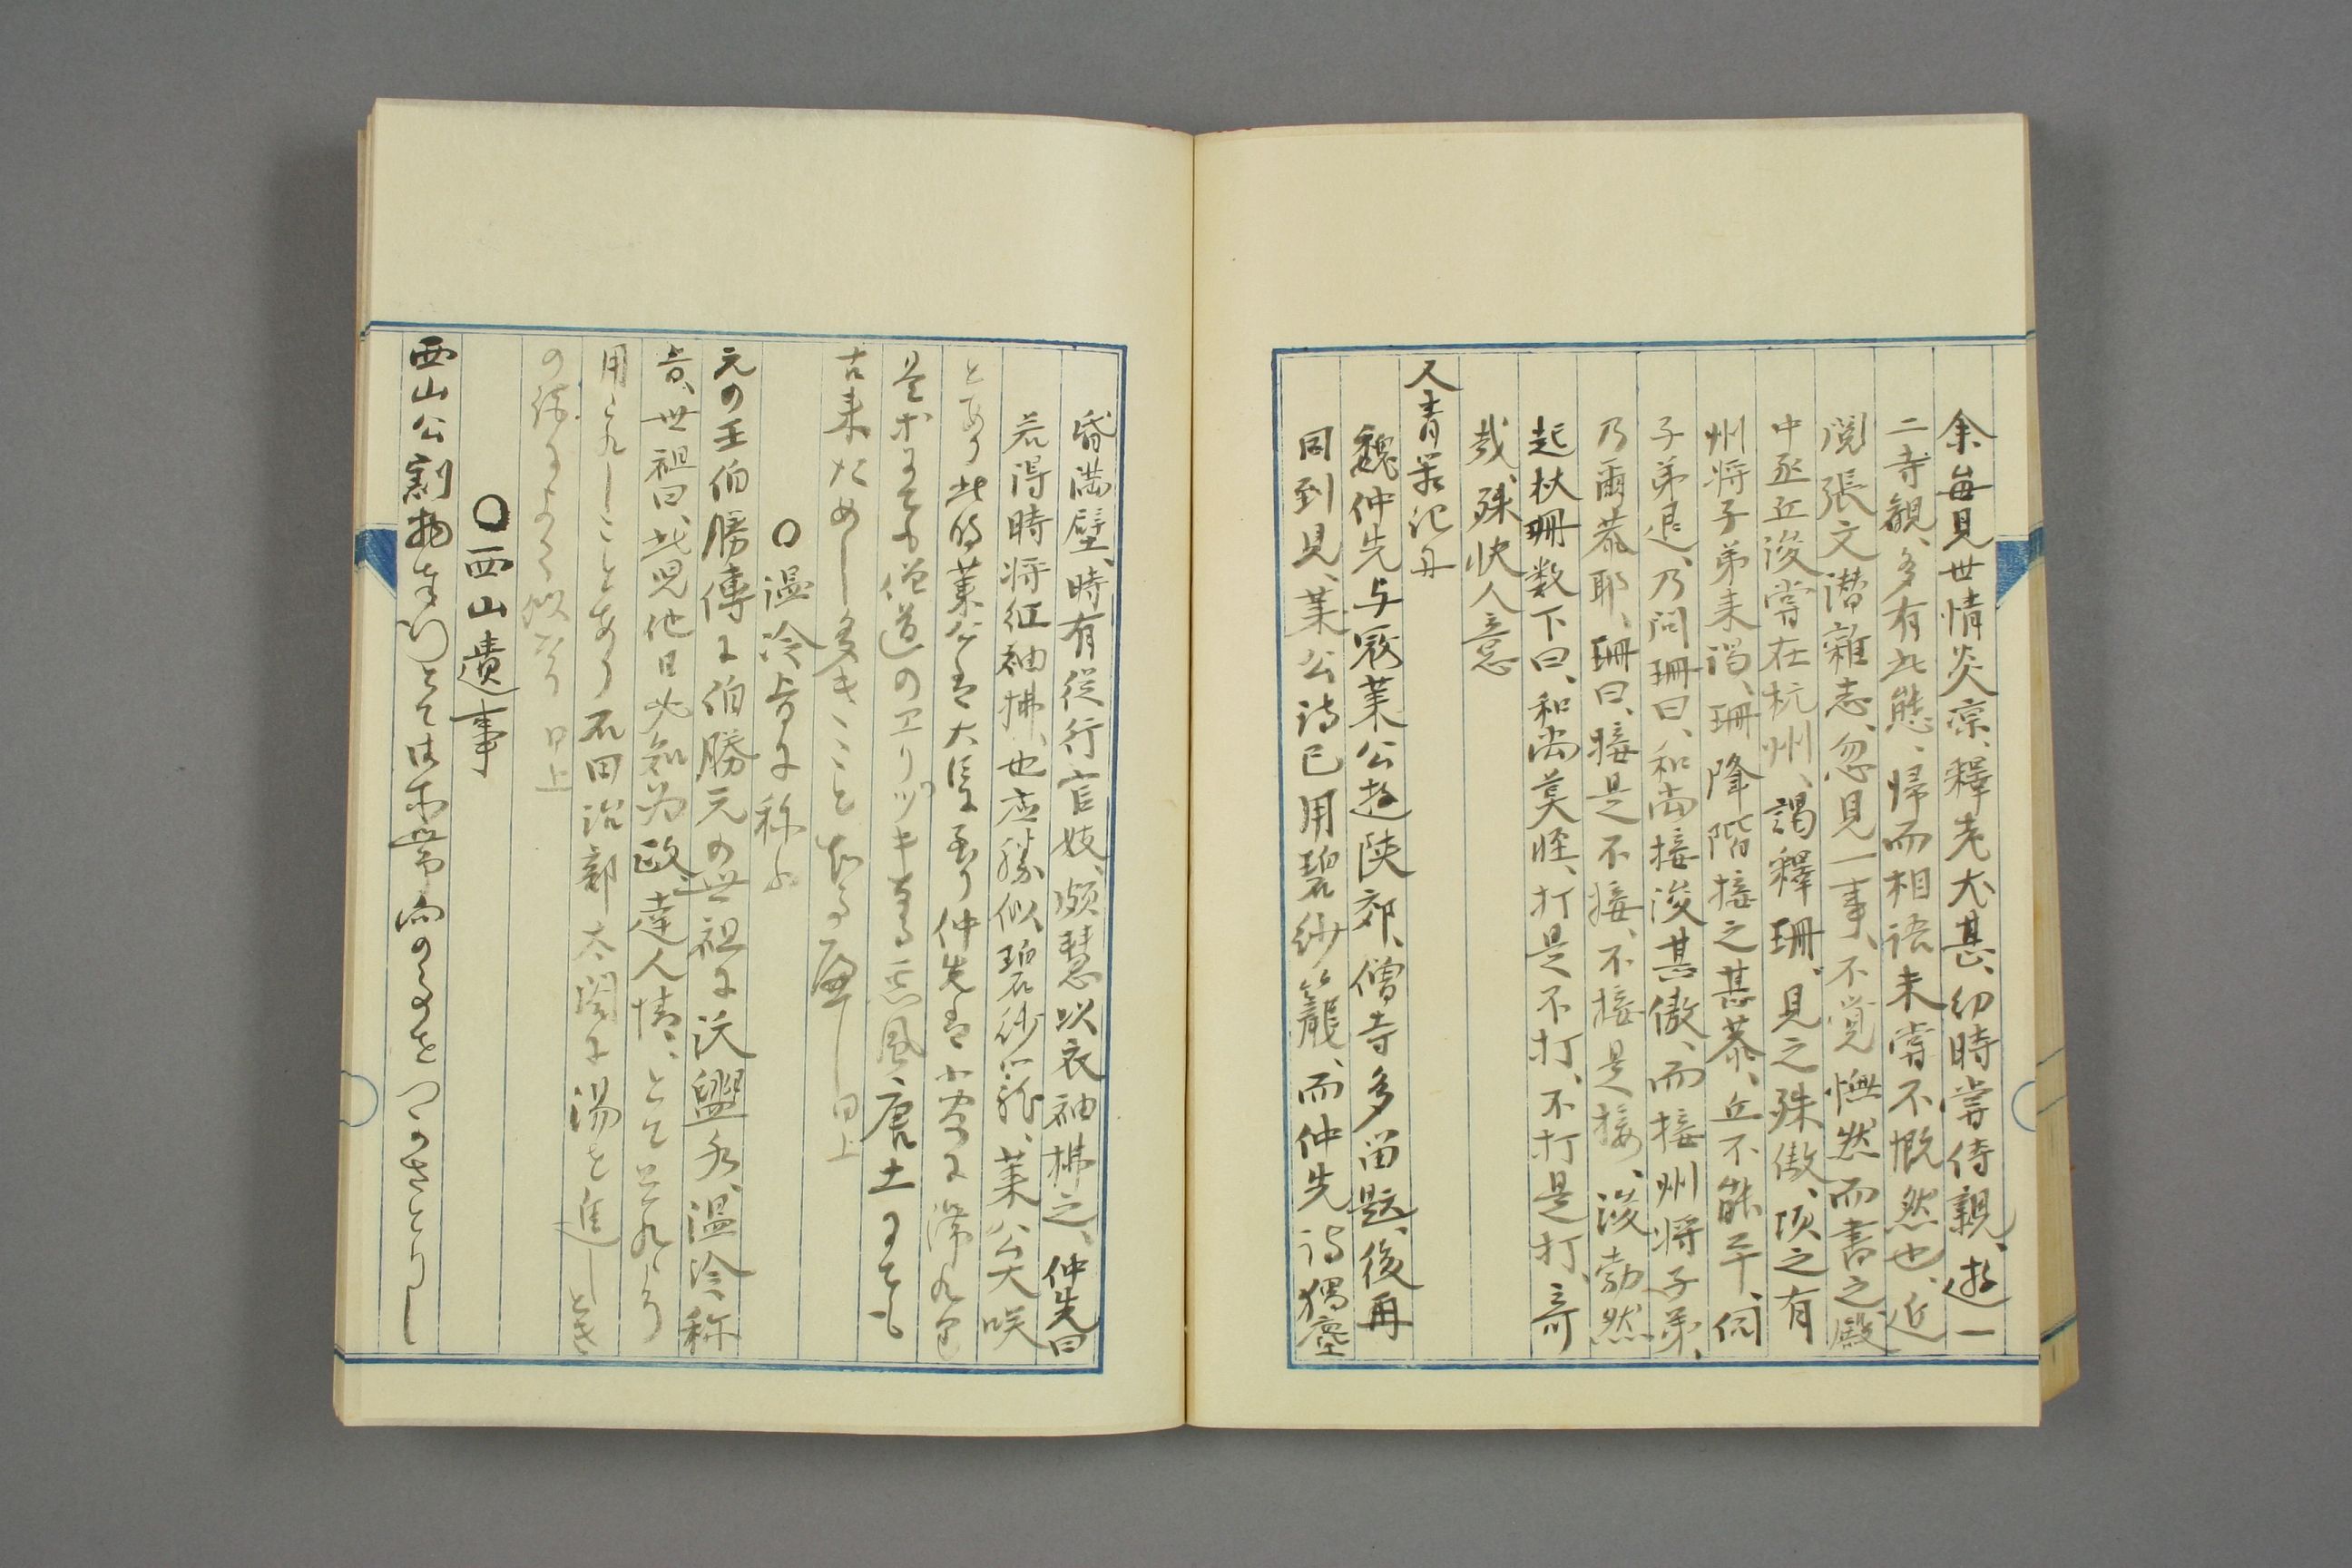 余毎見世情炎凉、釋老尤甚、幼時嘗侍親、遊一
二寺観、多有此態、帰而相語、未嘗不慨然也、近
閲張文潜雜志、忽見一事、不覚憮然而書之、殿
中丞丘浚嘗在杭州、謁釋珊、見之殊傲、頃之有
州将子弟来謁、珊降階接之甚恭、丘不能平、伺
子弟退、乃問珊曰、和尚接浚甚傲、而接州将子弟、
乃爾恭耶、珊曰、接是不接、不接是接、浚勃然
起杖珊数下曰、和尚莫恠、打是不打、不打是打、奇
哉、殊快人意
又青箱記
魏仲先与寇莱公遊陝郊、僧寺多留題、後再
同到、見莱公詩已用碧紗籠、而仲先詩獨塵
昏満壁、時有從行官妓、頗慧以衣袖拂之、仲先曰
若得時将紅袖拂、也應勝似碧紗籠、莱公大咲
とあり此時莱公は大臣に至り仲先は
僧道のヱリヅキする悪風唐土にても
古来ためし多きこと 同上
〇温冷旨に称ふ
元の王伯勝傳に伯勝元の世祖に沃盥水、温冷称
旨、世祖曰、此児他日必知為政、達人情、とて
用られしことあり石田治部太閤に湯を進しとき
の 似たり 同上
〇西山遺事
西山公割物